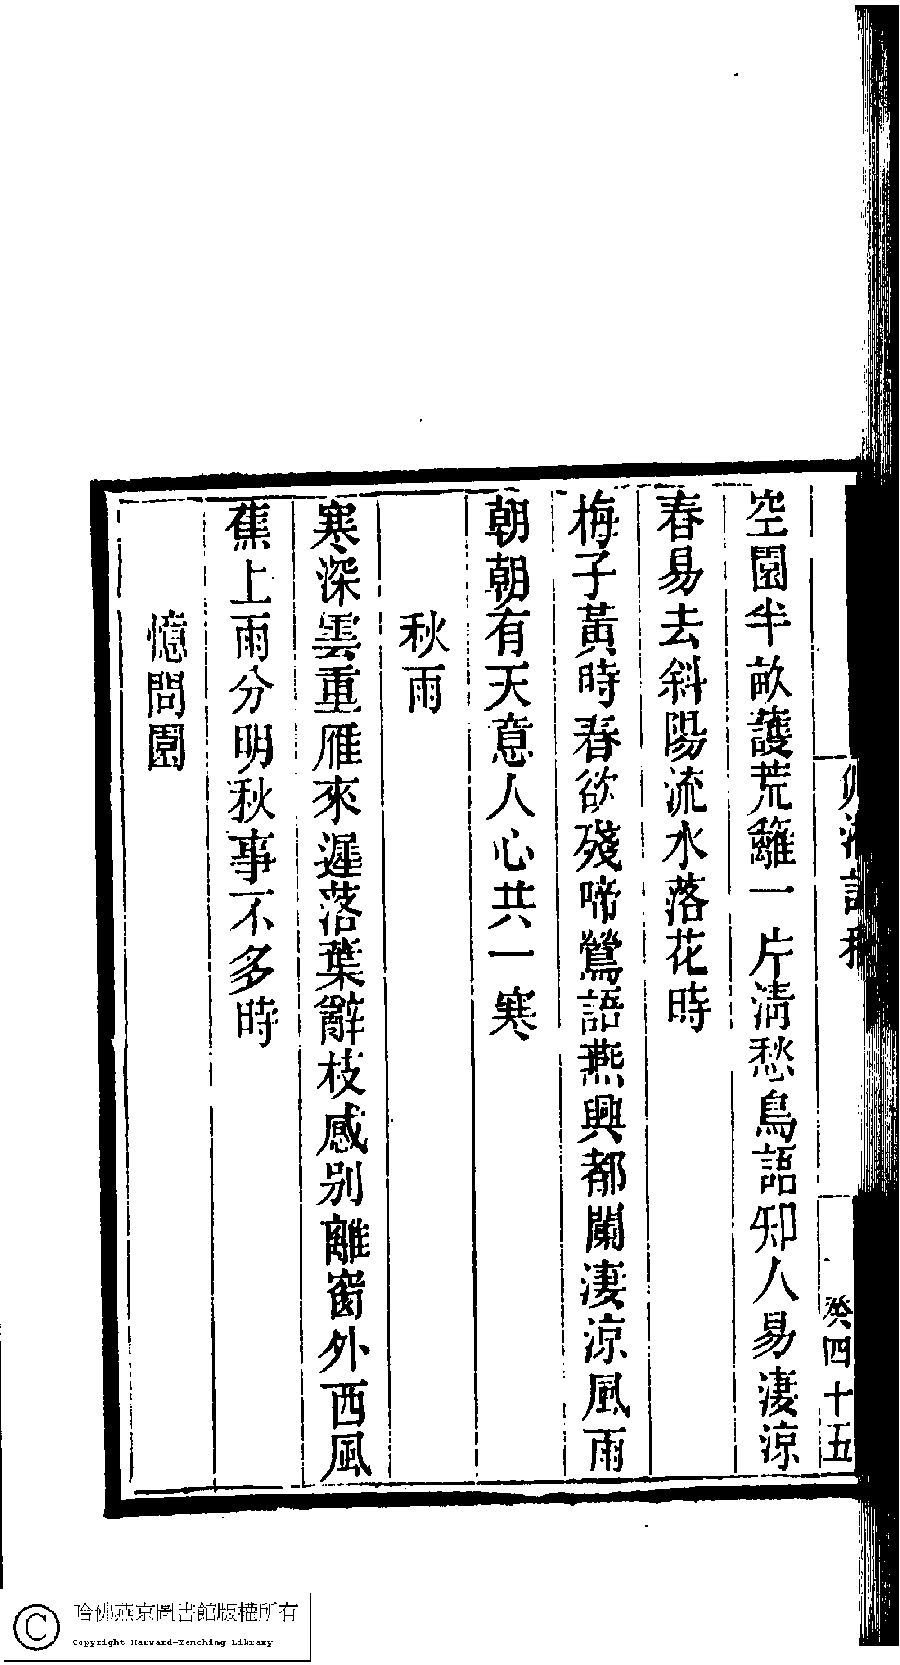 空園半畝護荒籬一片清愁鳥語知人易淒涼
春易去斜陽流水落花時
梅子黃時春欲殘啼鶯語燕興都闌淒涼風雨
朝朝有天意人心共一寒
秋雨
寒深雲重雁來遲落葉辭枝感別離窗外西風
蕉上雨分明秋事不多時
憶問園
癸四十五
哈佛燕京圖書館版權所有
Copyright Harvard-Yenching Library